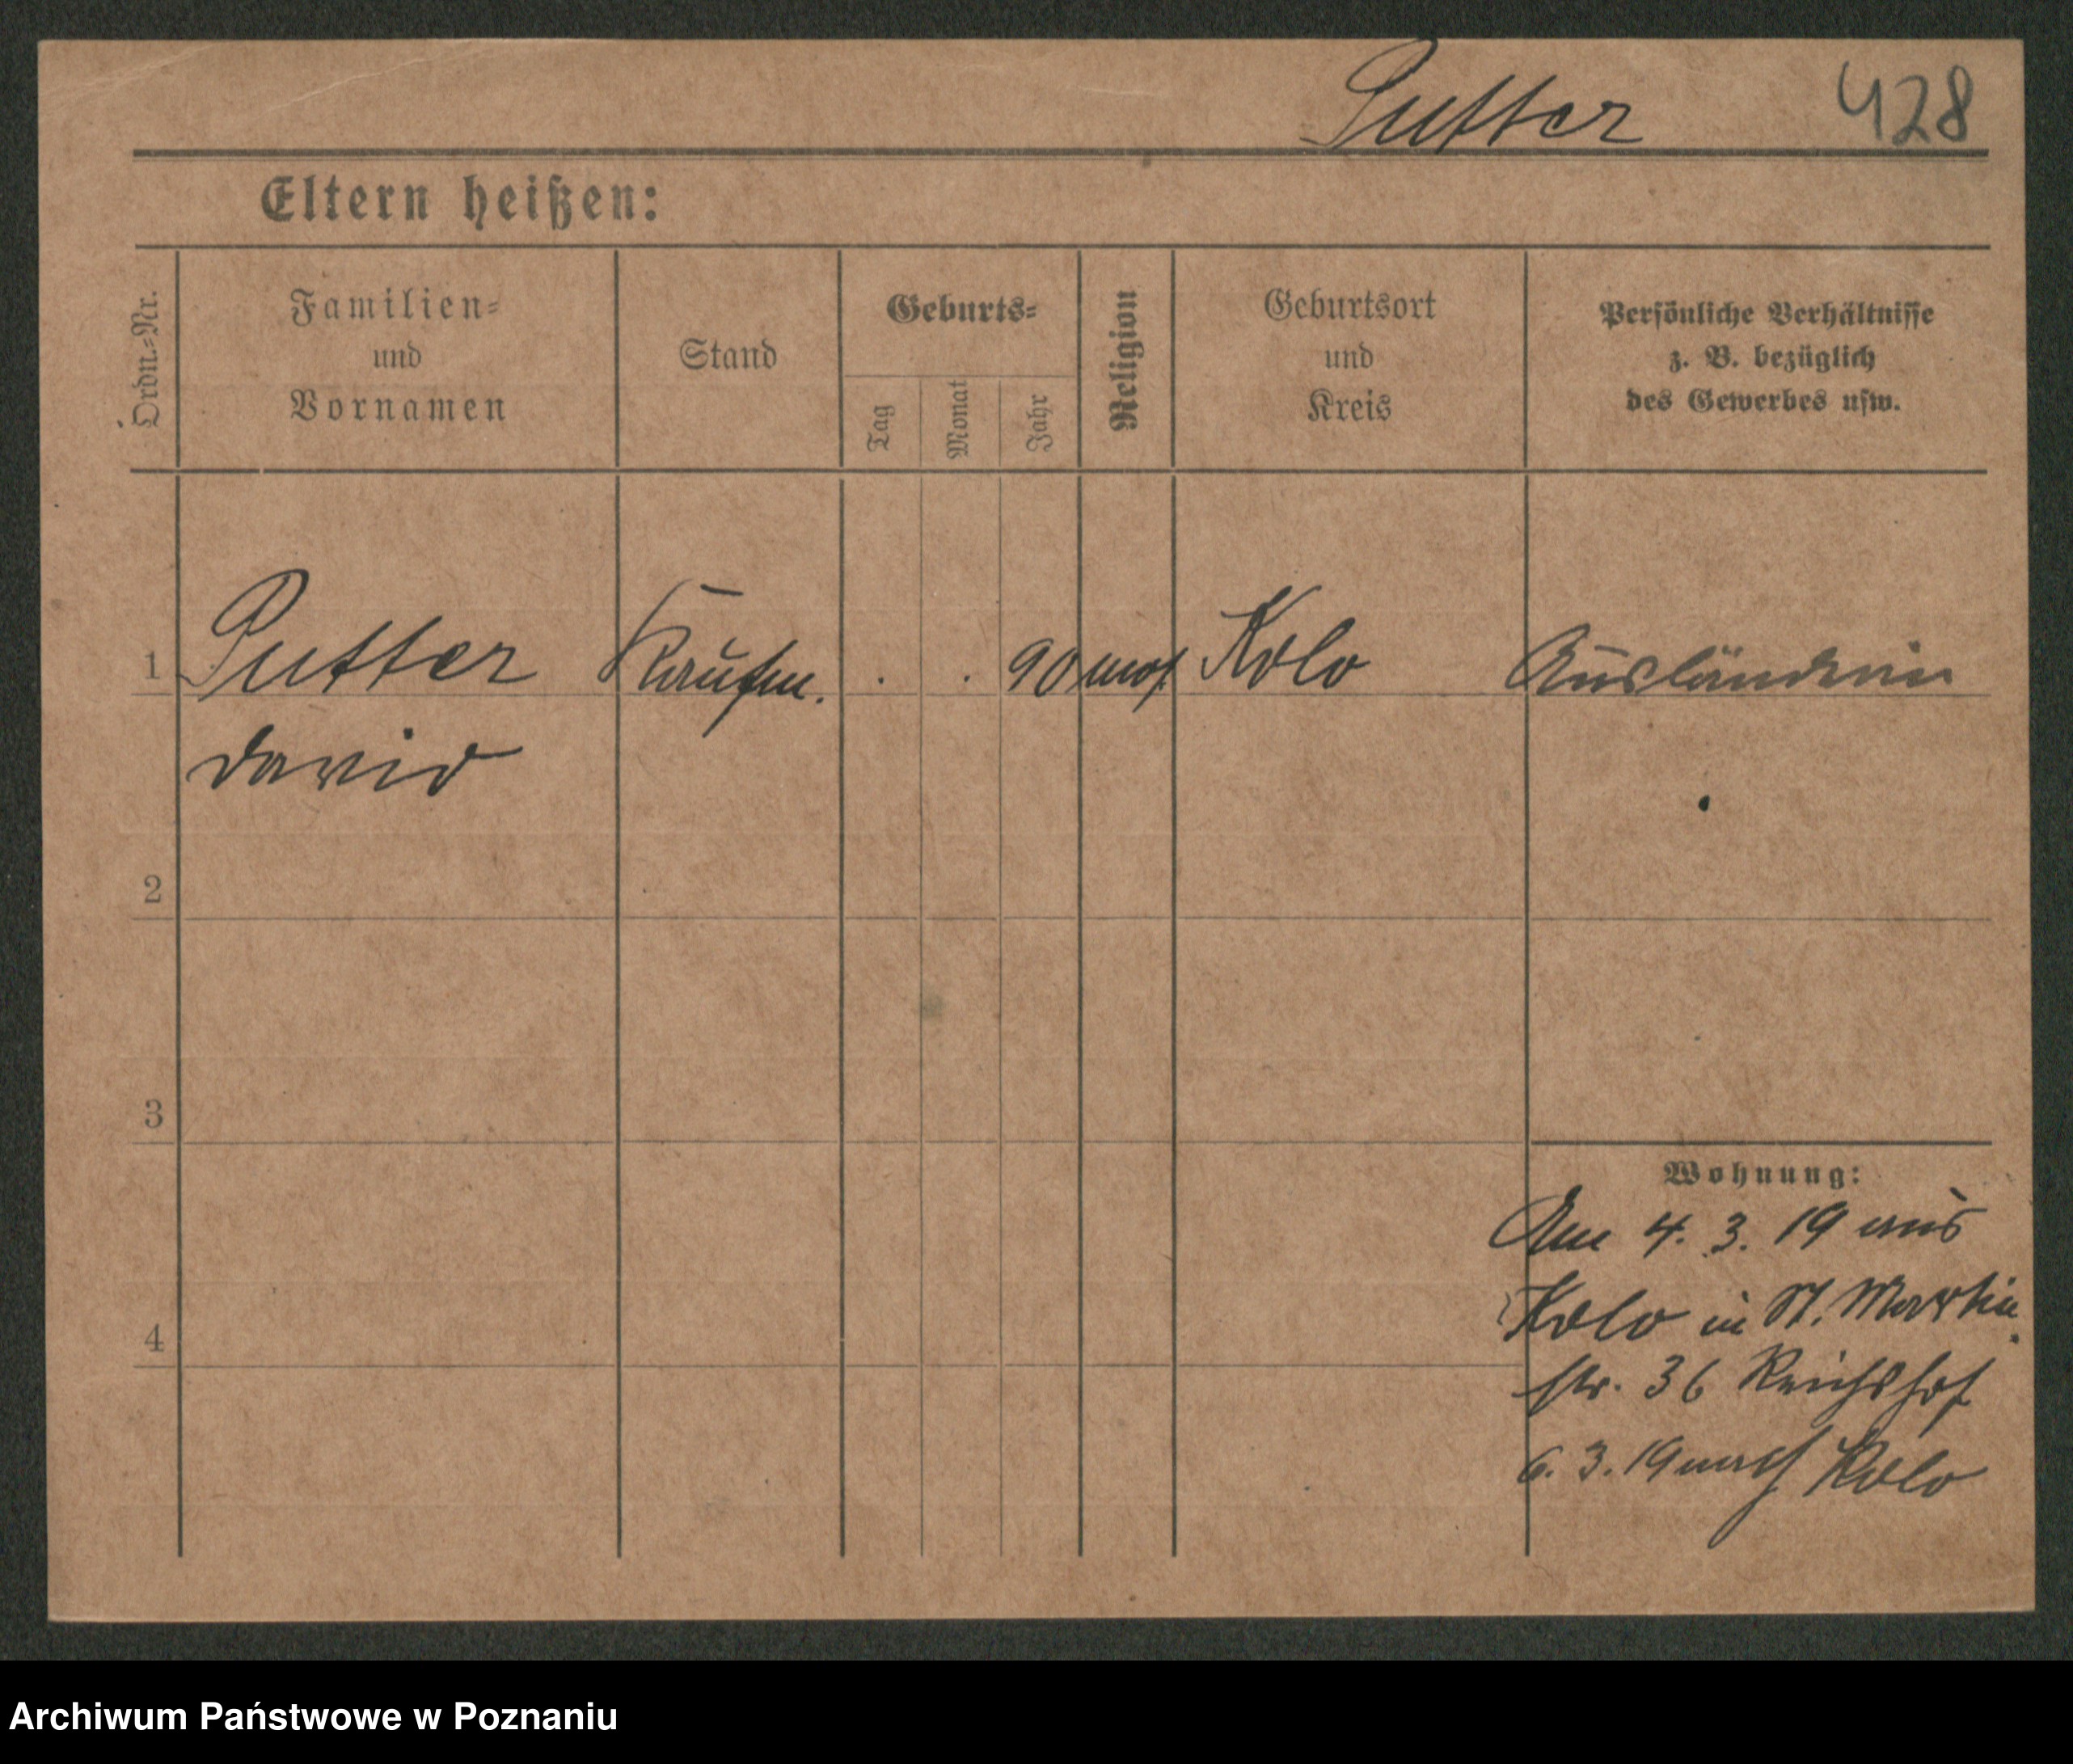 Sutter 428
Eltern heißen:
Ordn.-Nr.
Familien-
und
Vornamen
Stand
Geburts-
Tag
Monat
Jahr
Religion
Geburtsort
und
Kreis
Persönliche Verhältnisse
z. B. bezüglich
des Gewerbes usw.
1 Kaufm. . . 90 mos. Kolo
David
2
3
4
Wohnung:
Am 4. 3. 19 aus
Kolo in St. Martin
str. 36 Reichshof
6. 3. 19 nach Kolo
Archiwum Państwowe w Poznaniu